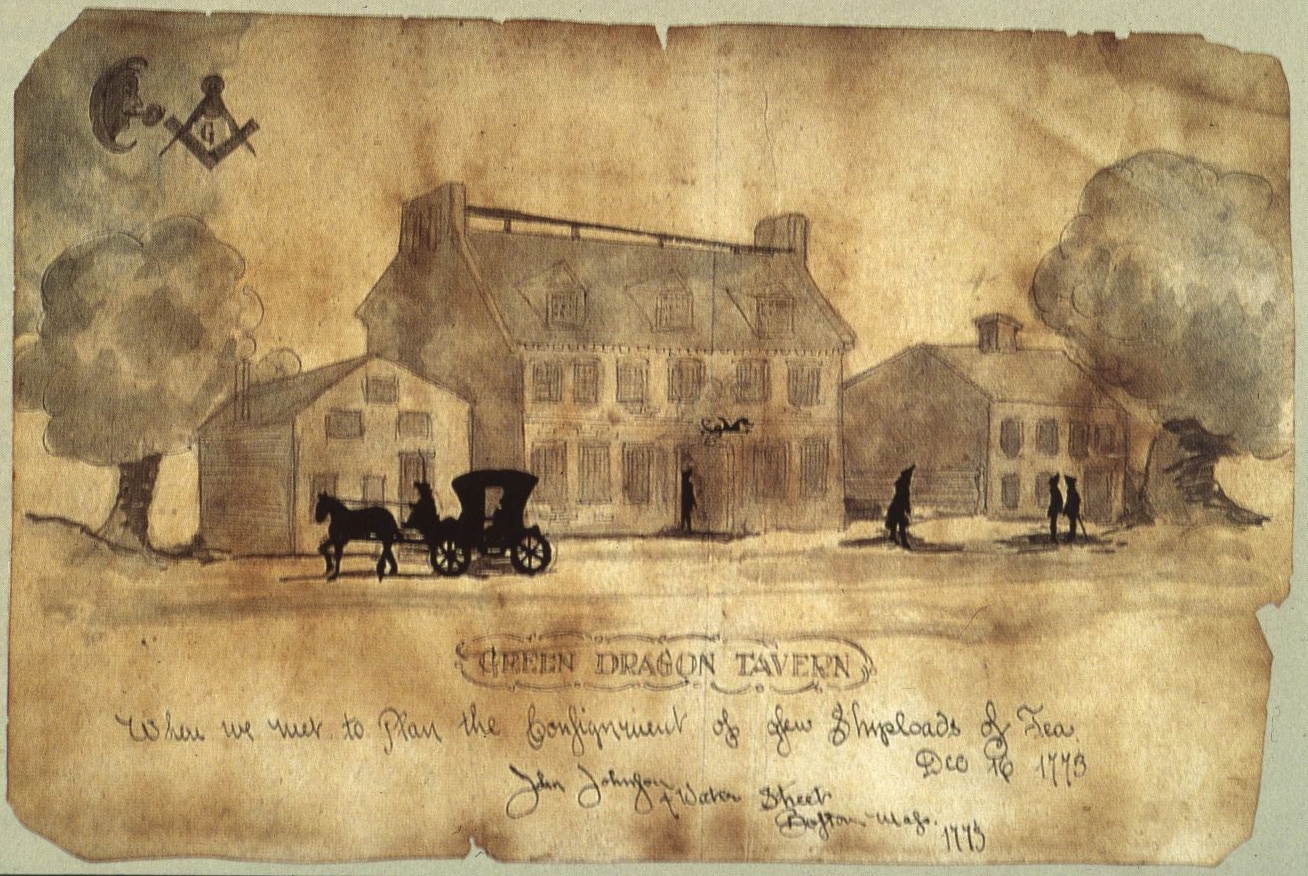 G
GREEN DRAGON TAVERN
Where we met to Plan the Consignment of a few Shiploads of Tea.
Dec 16 1773
John Johnson, 4 Water Street
Boston. Mass.
1773